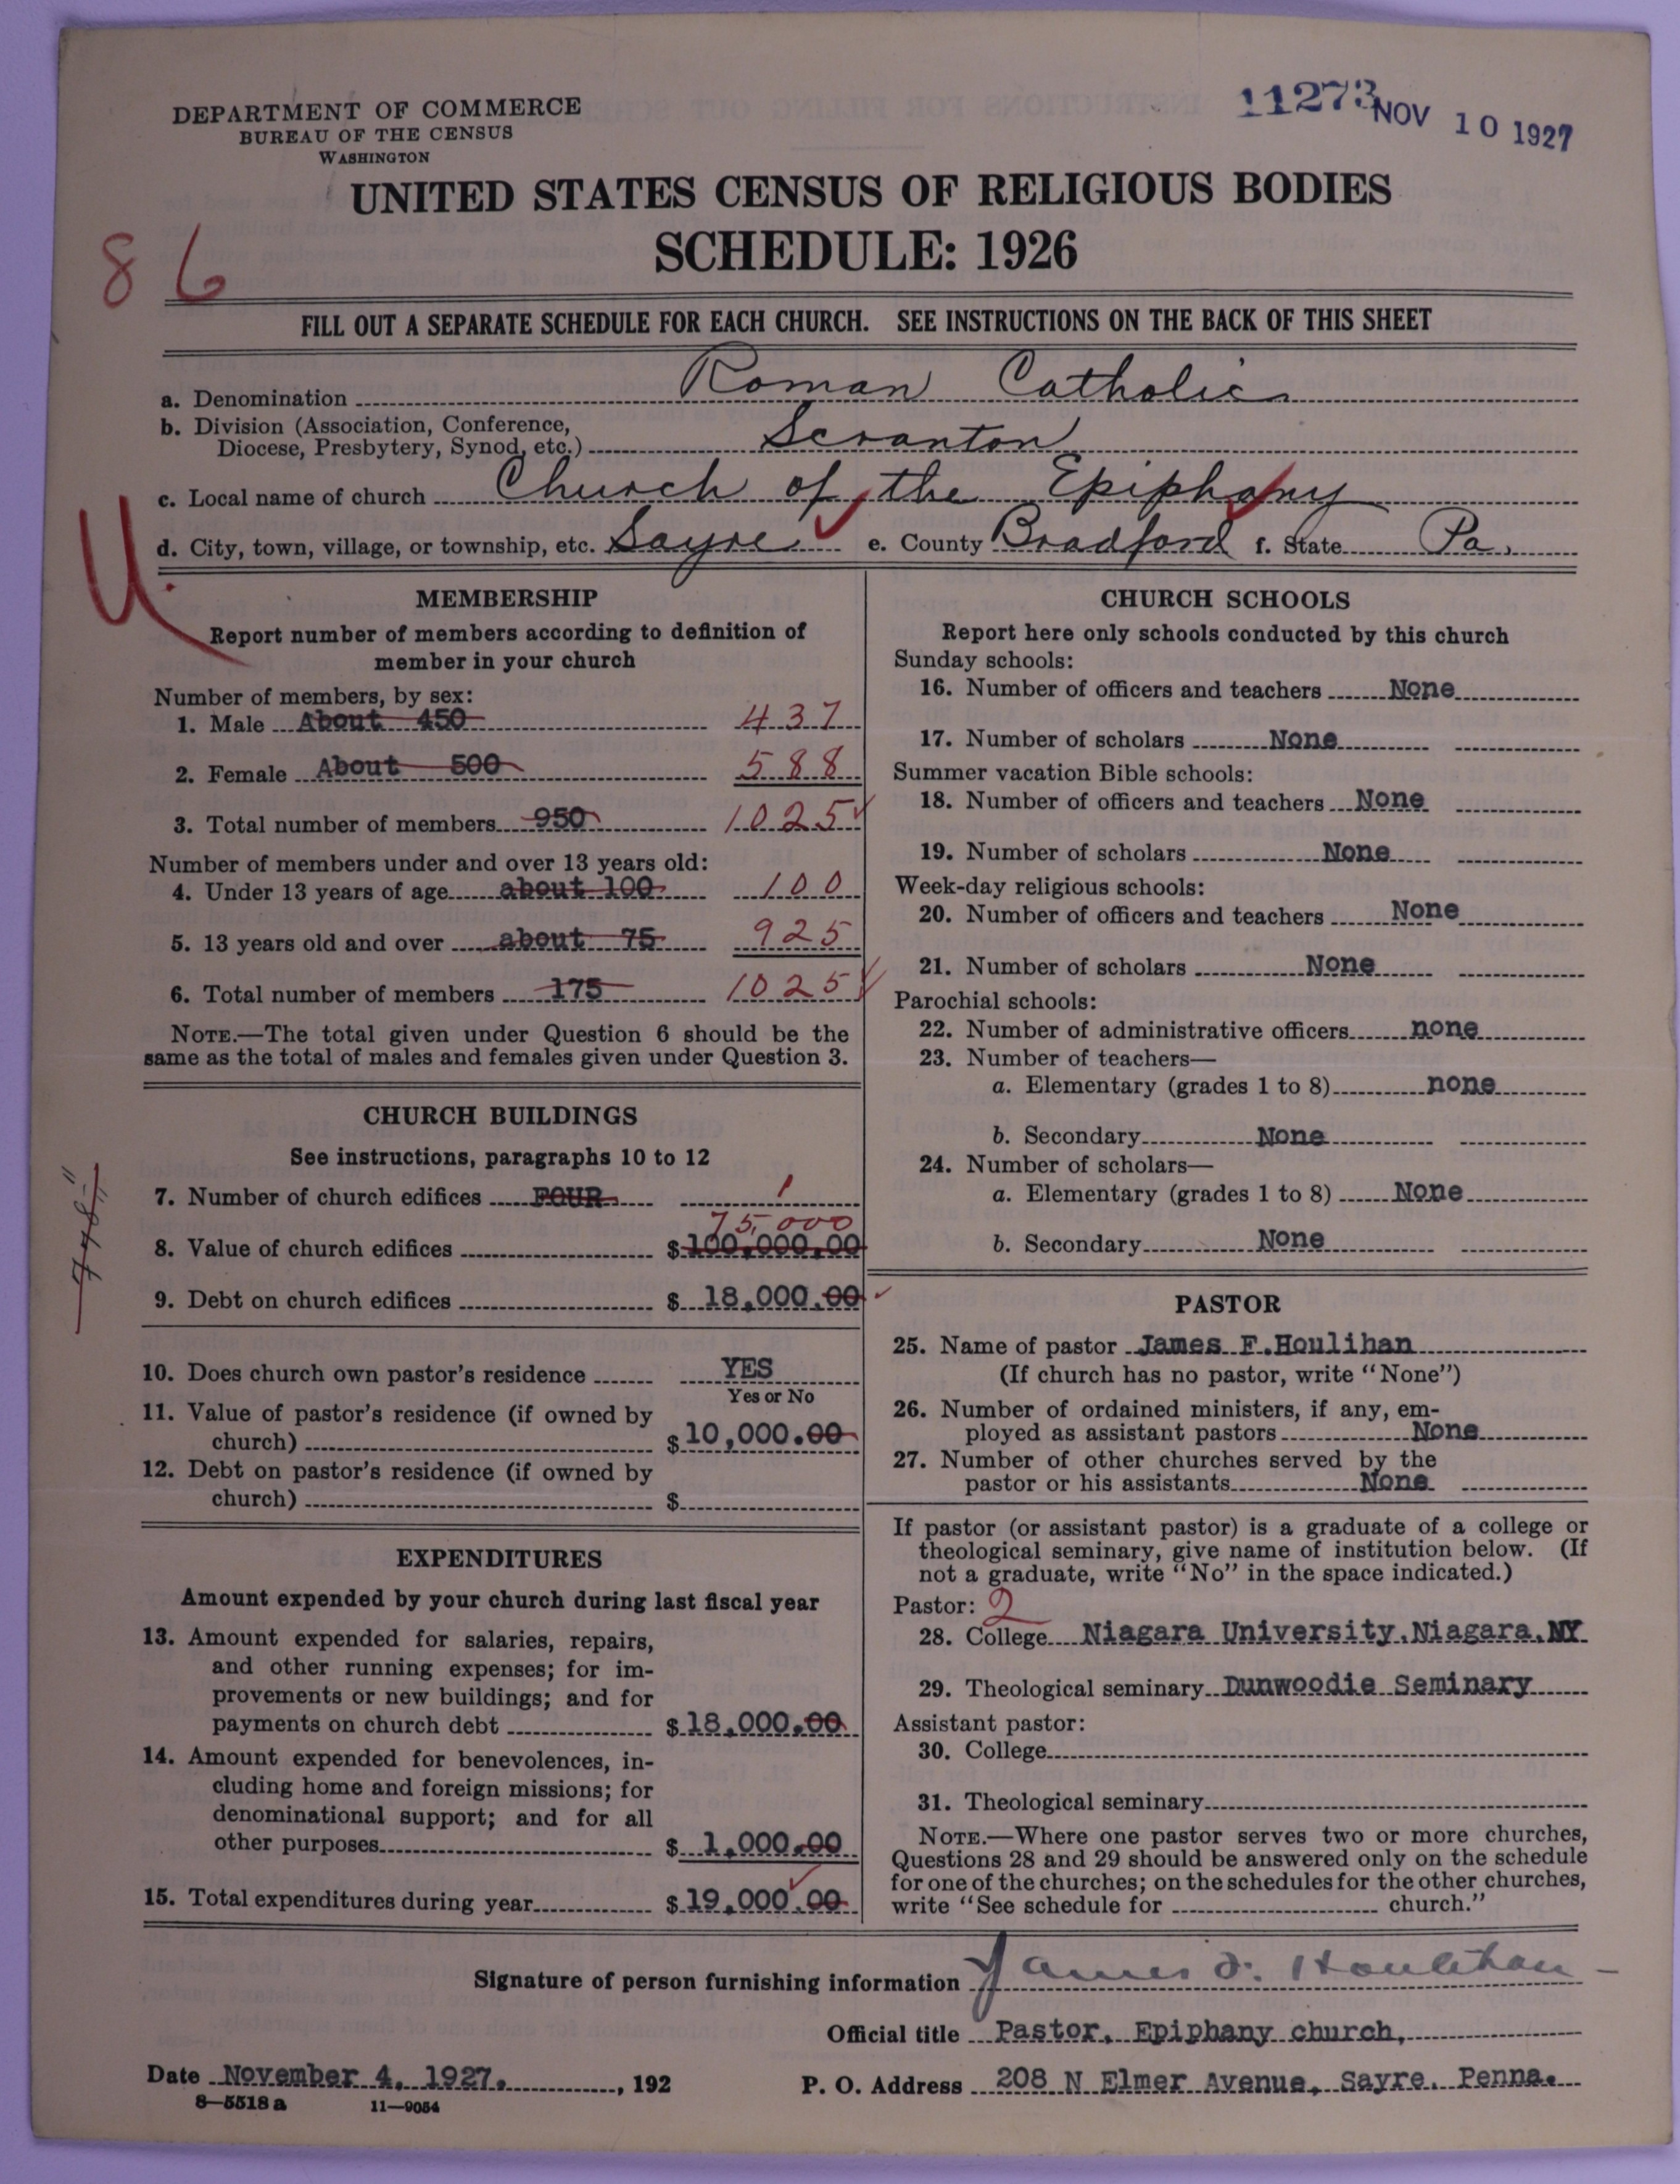 DEPARTMENT OF COMMERCE
BUREAU OF THE CENSUS
WASHINGTON
11273 NOV 10 1927
UNITED STATES CENSUS OF RELIGIOUS BODIES
SCHEDULE: 1926
86
FILL OUT A SEPARATE SCHEDULE FOR EACH CHURCH. SEE INSTRUCTIONS ON THE BACK OF THIS SHEET
a. Denomination Roman Catholic
b. Division (Association, Conference,
Diocese, Presbytery, Synod, etc.) Scranton
c. Local name of church Church of the Epiphany
d. City, town, village, or township, etc. Sayre e. County Bradford f. State Pa.
MEMBERSHIP
Report number of members according to definition of
member in your church
Number of members, by sex:
1. Male About 450 437
2. Female About 500 588
3. Total number of members 950 1025
Number of members under and over 13 years old:
4. Under 13 years of age about 100 100
5. 13 years old and over about 75 925
6. Total number of members 175 1025
NOTE.—The total given under Question 6 should be the
same as the total of males and females given under Question 3.
CHURCH BUILDINGS
See instructions, paragraphs 10 to 12
7. Number of church edifices FOUR 1
75,000
8. Value of church edifices $100,000.00
9. Debt on church edifices $ 18,000.00
10. Does church own pastor's residence YES
Yes or No
11. Value of pastor's residence (if owned by
church) $10,000.00
12. Debt on pastor's residence (if owned by
church) $
EXPENDITURES
Amount expended by your church during last fiscal year
13. Amount expended for salaries, repairs,
and other running expenses; for im-
provements or new buildings; and for
payments on church debt $18,000.00
14. Amount expended for benevolences, in-
cluding home and foreign missions; for
denominational support; and for all
other purposes $ 1,000.00
15. Total expenditures during year $19,000.00
CHURCH SCHOOLS
Report here only schools conducted by this church
Sunday schools:
16. Number of officers and teachers None
17. Number of scholars None
Summer vacation Bible schools:
18. Number of officers and teachers None
19. Number of scholars None
Week-day religious schools:
20. Number of officers and teachers None
21. Number of scholars None
Parochial schools:
22. Number of administrative officers none
23. Number of teachers—
a. Elementary (grades 1 to 8) none
b. Secondary None
24. Number of scholars—
a. Elementary (grades 1 to 8) None
b. Secondary None
PASTOR
25. Name of pastor James F.Houlihan
(If church has no pastor, write "None")
26. Number of ordained ministers, if any, em-
ployed as assistant pastors None
27. Number of other churches served by the
pastor or his assistants None
If pastor (or assistant pastor) is a graduate of a college or
theological seminary, give name of institution below. (If
not a graduate, write "No" in the space indicated.)
Pastor: 2
28. College Niagara University.Niagara.NY
29. Theological seminary Dunwoodie Seminary
Assistant pastor:
30. College
31. Theological seminary
NOTE.—Where one pastor serves two or more churches,
Questions 28 and 29 should be answered only on the schedule
for one of the churches; on the schedules for the other churches,
write "See schedule for church."
Signature of person furnishing information James F. Houlihan
Official title Pastor, Epiphany church,
Date November 4, 1927. , 192
P. O. Address 208 N Elmer Avenue, Sayre. Penna.
8—5518 a 11—9054